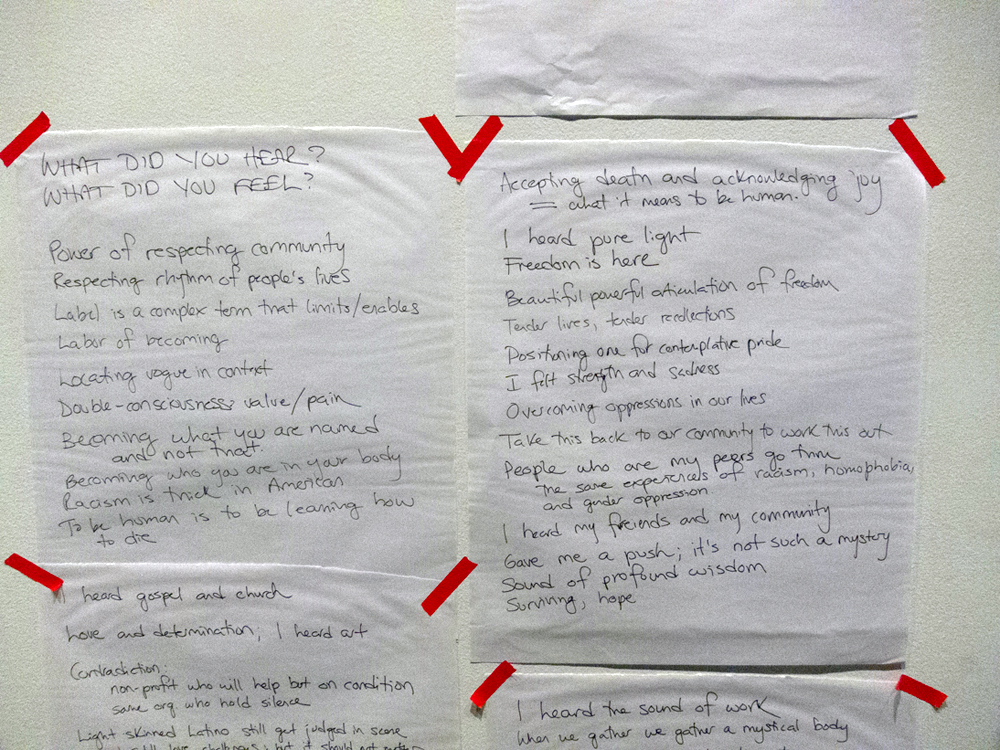 WHAT DID YOU HEAR?
WHAT DID YOU FEEL?
Power of respecting community
Respecting rhythm of people's lives
Label is a complex term that limits/enables
Labor of becoming
Locating vogue in context
Double-consciousness: value/pain
Becoming what you are named
and not that.
Becoming who you are in your body
Racism is thick in American
To be human is to be learning how
to die
I heard gospel and church
Love and determination; I heard art
Contradiction:
non-profit who will help but on condition
same org who hold silence
Light skinned Latino still get judged in scene
Accepting death and acknowledging joy
= what it means to be human.
I heard pure light
Freedom is here
Beautiful powerful articulation of freedom
Tender lives, tender recollections
Positioning one for contemplative pride
I felt strength and sadness
Overcoming oppressions in our lives
Take this back to our community to work this out
People who are my peers go thru
the same experiences of racism, homophobia,
and gender oppression.
I heard my freiends and my community
Gave me a push; it's not such a mystery
Sound of profound wisdom
Surviving, hope
I heard the sound of work
When we gather we gather a mystical body